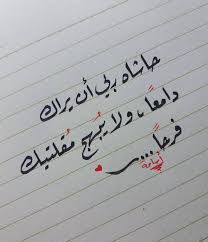 حاشاه ربي أن يراك
دامعًا، ولا يُبهج مُقلتيك
فرحًا...